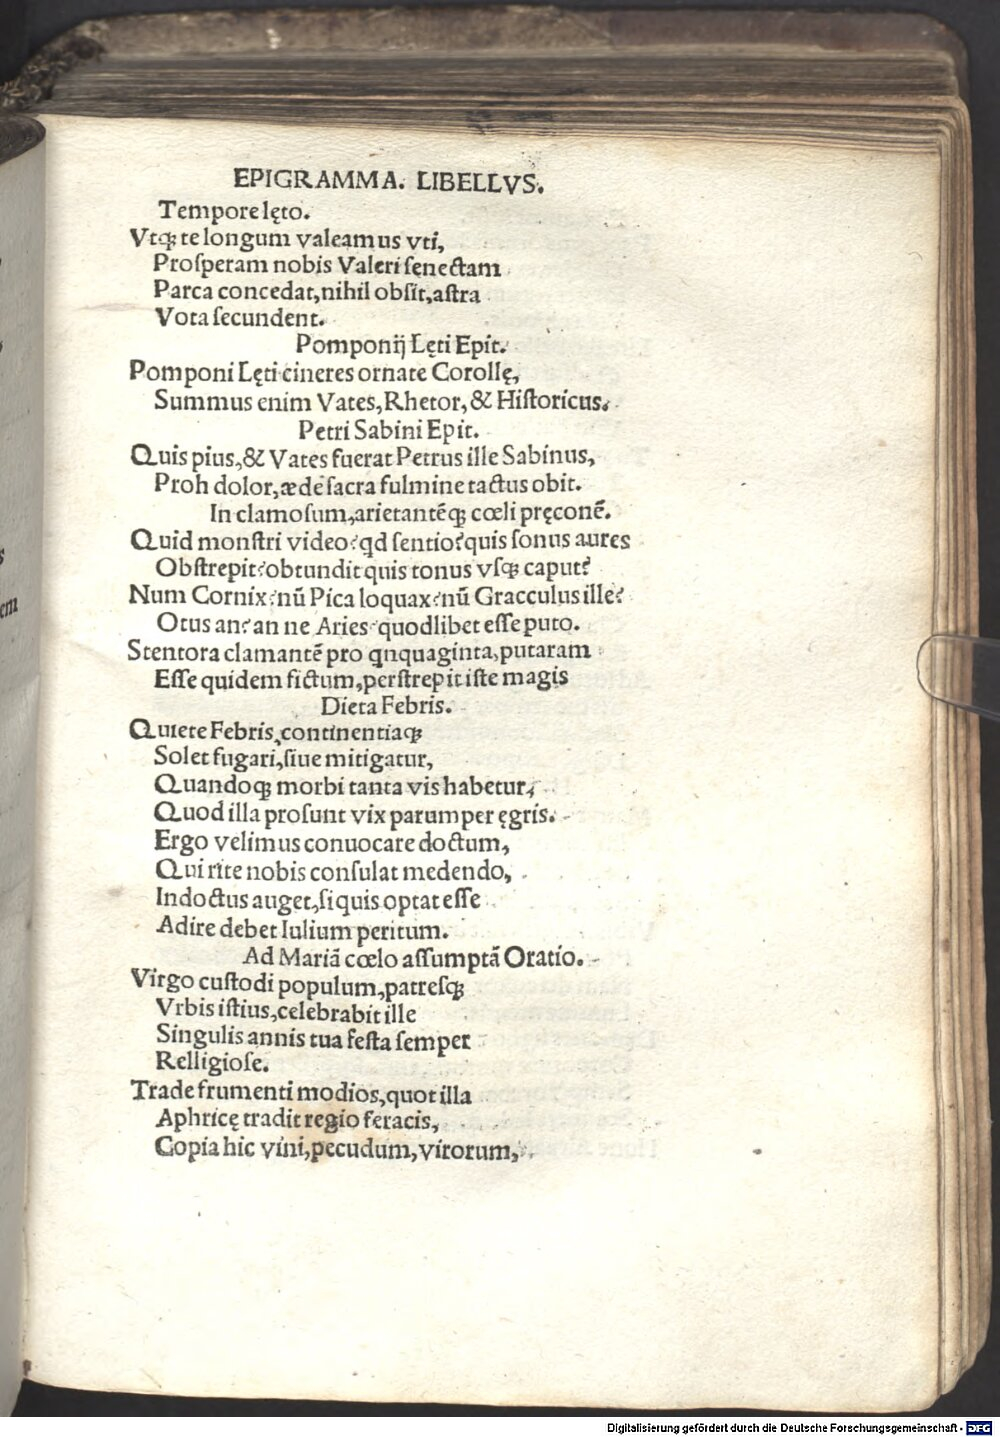 EPIGRAMMA. LIBELLVS.
Tempore lęto.
Vtq&#xA76B; te longum valeamus vti,
Proſperam nobis Valeri ſenectam
Parca concedat, nihil obſit, aſtra
Vota ſecundent.
Pomponij Lęti Epit.
Pomponi Lęti cineres ornate Corollę,
Summus enim Vates, Rhetor, & Hiſtoricus.
Petri Sabini Epit.
Quis pius, & Vates fuerat Petrus ille Sabinus,
Proh dolor, æde ſacra fulmine tactus obit.
In clamoſum, arietantēqꝫ cœli pręconē.
Quid monſtri video? qd ſentio? quis ſonus aures
Obſtrepit? obtundit quis tonus vſqꝫ caput?
Num Cornix? nū Pica loquax? nū Gracculus ille?
Otus an? an ne Aries? quodlibet eſſe puto.
Stentora clamantē pro qnquaginta, putaram
Eſſe quidem fictum, perſtrepit iſte magis
Dieta Febris.
Quiete Febris, continentiaqꝫ
Solet fugari, ſiue mitigatur,
Quandoqꝫ morbi tanta vis habetur,
Quod illa proſunt vix parumper ęgris.
Ergo velimus conuocare doctum,
Qui rite nobis conſulat medendo,
Indoctus auget, ſi quis optat eſſe
Adire debet Iulium peritum.
Ad Mariā cœlo aſſumptā Oratio.
Virgo cuſtodi populum, patreſqꝫ
Vrbis iſtius, celebrabit ille
Singulis annis tua feſta ſemper
Relligioſe.
Trade frumenti modios, quot illa
Aphricę tradit regio feracis,
Copia hic vini, pecudum, virorum,
em
Digitalisierung gefördert durch die Deutsche Forschungsgemeinschaft - DFG